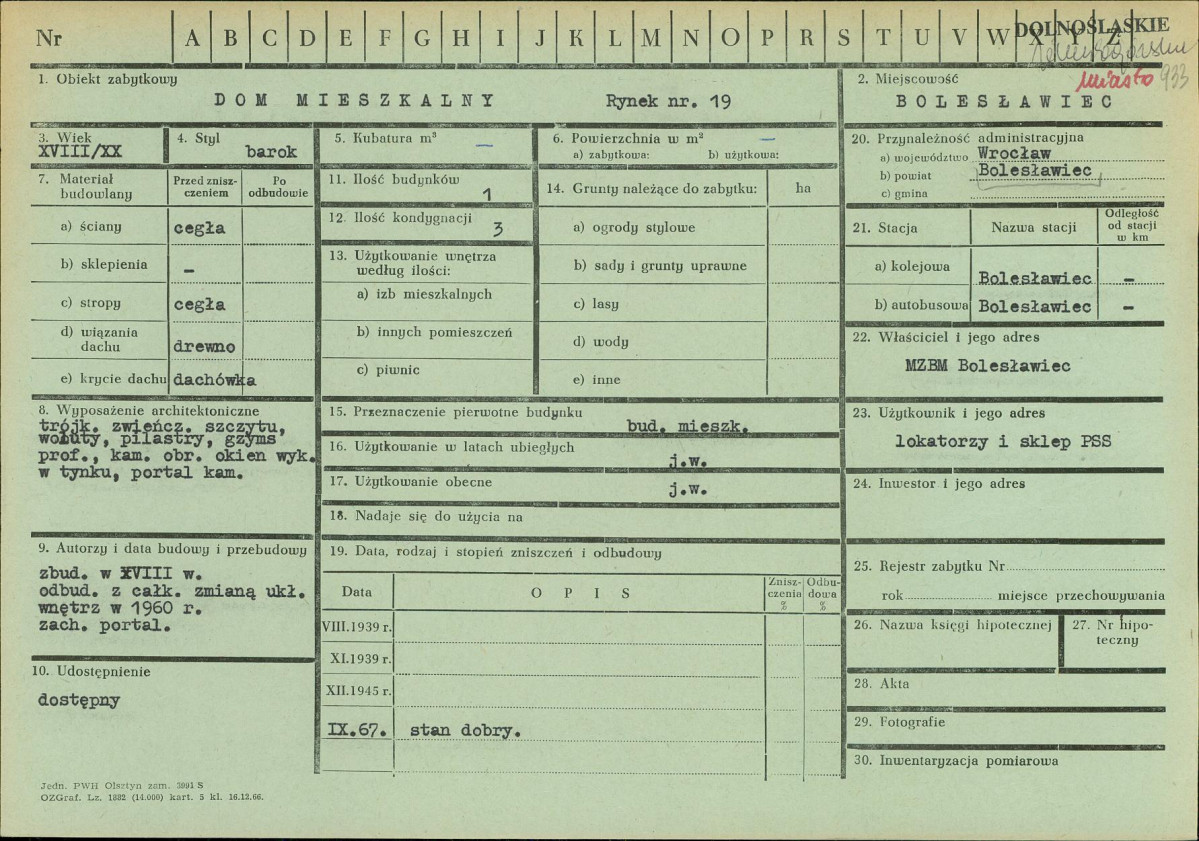 Nr A B C D E F G H I J K L M N O P R S T U V W X Y Z
DOLNOŚLĄSKIE
miasto 933
1. Obiekt zabytkowy
DOM MIESZKALNY Rynek nr. 19
2. Miejscowość
BOLESŁAWIEC
3. Wiek
XVIII/XX
4. Styl
barok
5. Kubatura m³
—
6. Powierzchnia w m² —
a) zabytkowa: b) użytkowa:
7. Materiał budowlany
Przed znisz-
czeniem
Po
odbudowie
a) ściany cegła
b) sklepienia –
c) stropy cegła
d) wiązania
dachu drewno
e) krycie dachu dachówka
8. Wyposażenie architektoniczne
trójk. zwieńcz. szczytu,
woluty, pilastry, gzyms
prof., kam. obr. okien wyk.
w tynku, portal kam.
9. Autorzy i data budowy i przebudowy
zbud. w XVIII w.
odbud. z całk. zmianą ukł.
wnętrz w 1960 r.
zach. portal.
10. Udostępnienie
dostępny
11. Ilość budynków
1
12. Ilość kondygnacji
3
13. Użytkowanie wnętrza
według ilości:
a) izb mieszkalnych
b) innych pomieszczeń
c) piwnic
14. Grunty należące do zabytku: ha
a) ogrody stylowe
b) sady i grunty uprawne
c) lasy
d) wody
e) inne
15. Przeznaczenie pierwotne budynku
bud. mieszk.
16. Użytkowanie w latach ubiegłych
j.w.
17. Użytkowanie obecne
j.w.
18. Nadaje się do użycia na
19. Data, rodzaj i stopień zniszczeń i odbudowy
Data OPIS
Znisz-
czenia
%
Odbu-
dowa
%
VIII.1939 r.
XI.1939 r.
XII.1945 r.
IX.67. stan dobry.
20. Przynależność administracyjna
a) województwo Wrocław
b) powiat Bolesławiec
c) gmina
21. Stacja Nazwa stacji
Odległość
od stacji
w km
a) kolejowa Bolesławiec –
b) autobusowa Bolesławiec –
22. Właściciel i jego adres
MZBM Bolesławiec
23. Użytkownik i jego adres
lokatorzy i sklep PSS
24. Inwestor i jego adres
25. Rejestr zabytku Nr
rok miejsce przechowywania
26. Nazwa księgi hipotecznej
27. Nr hipo-
teczny
28. Akta
29. Fotografie
30. Inwentaryzacja pomiarowa
Jedn. PWH Olsztyn zam. 3991 S
OZGraf. Lz. 1882 (14.000) kart. 5 kl. 16.12.66.